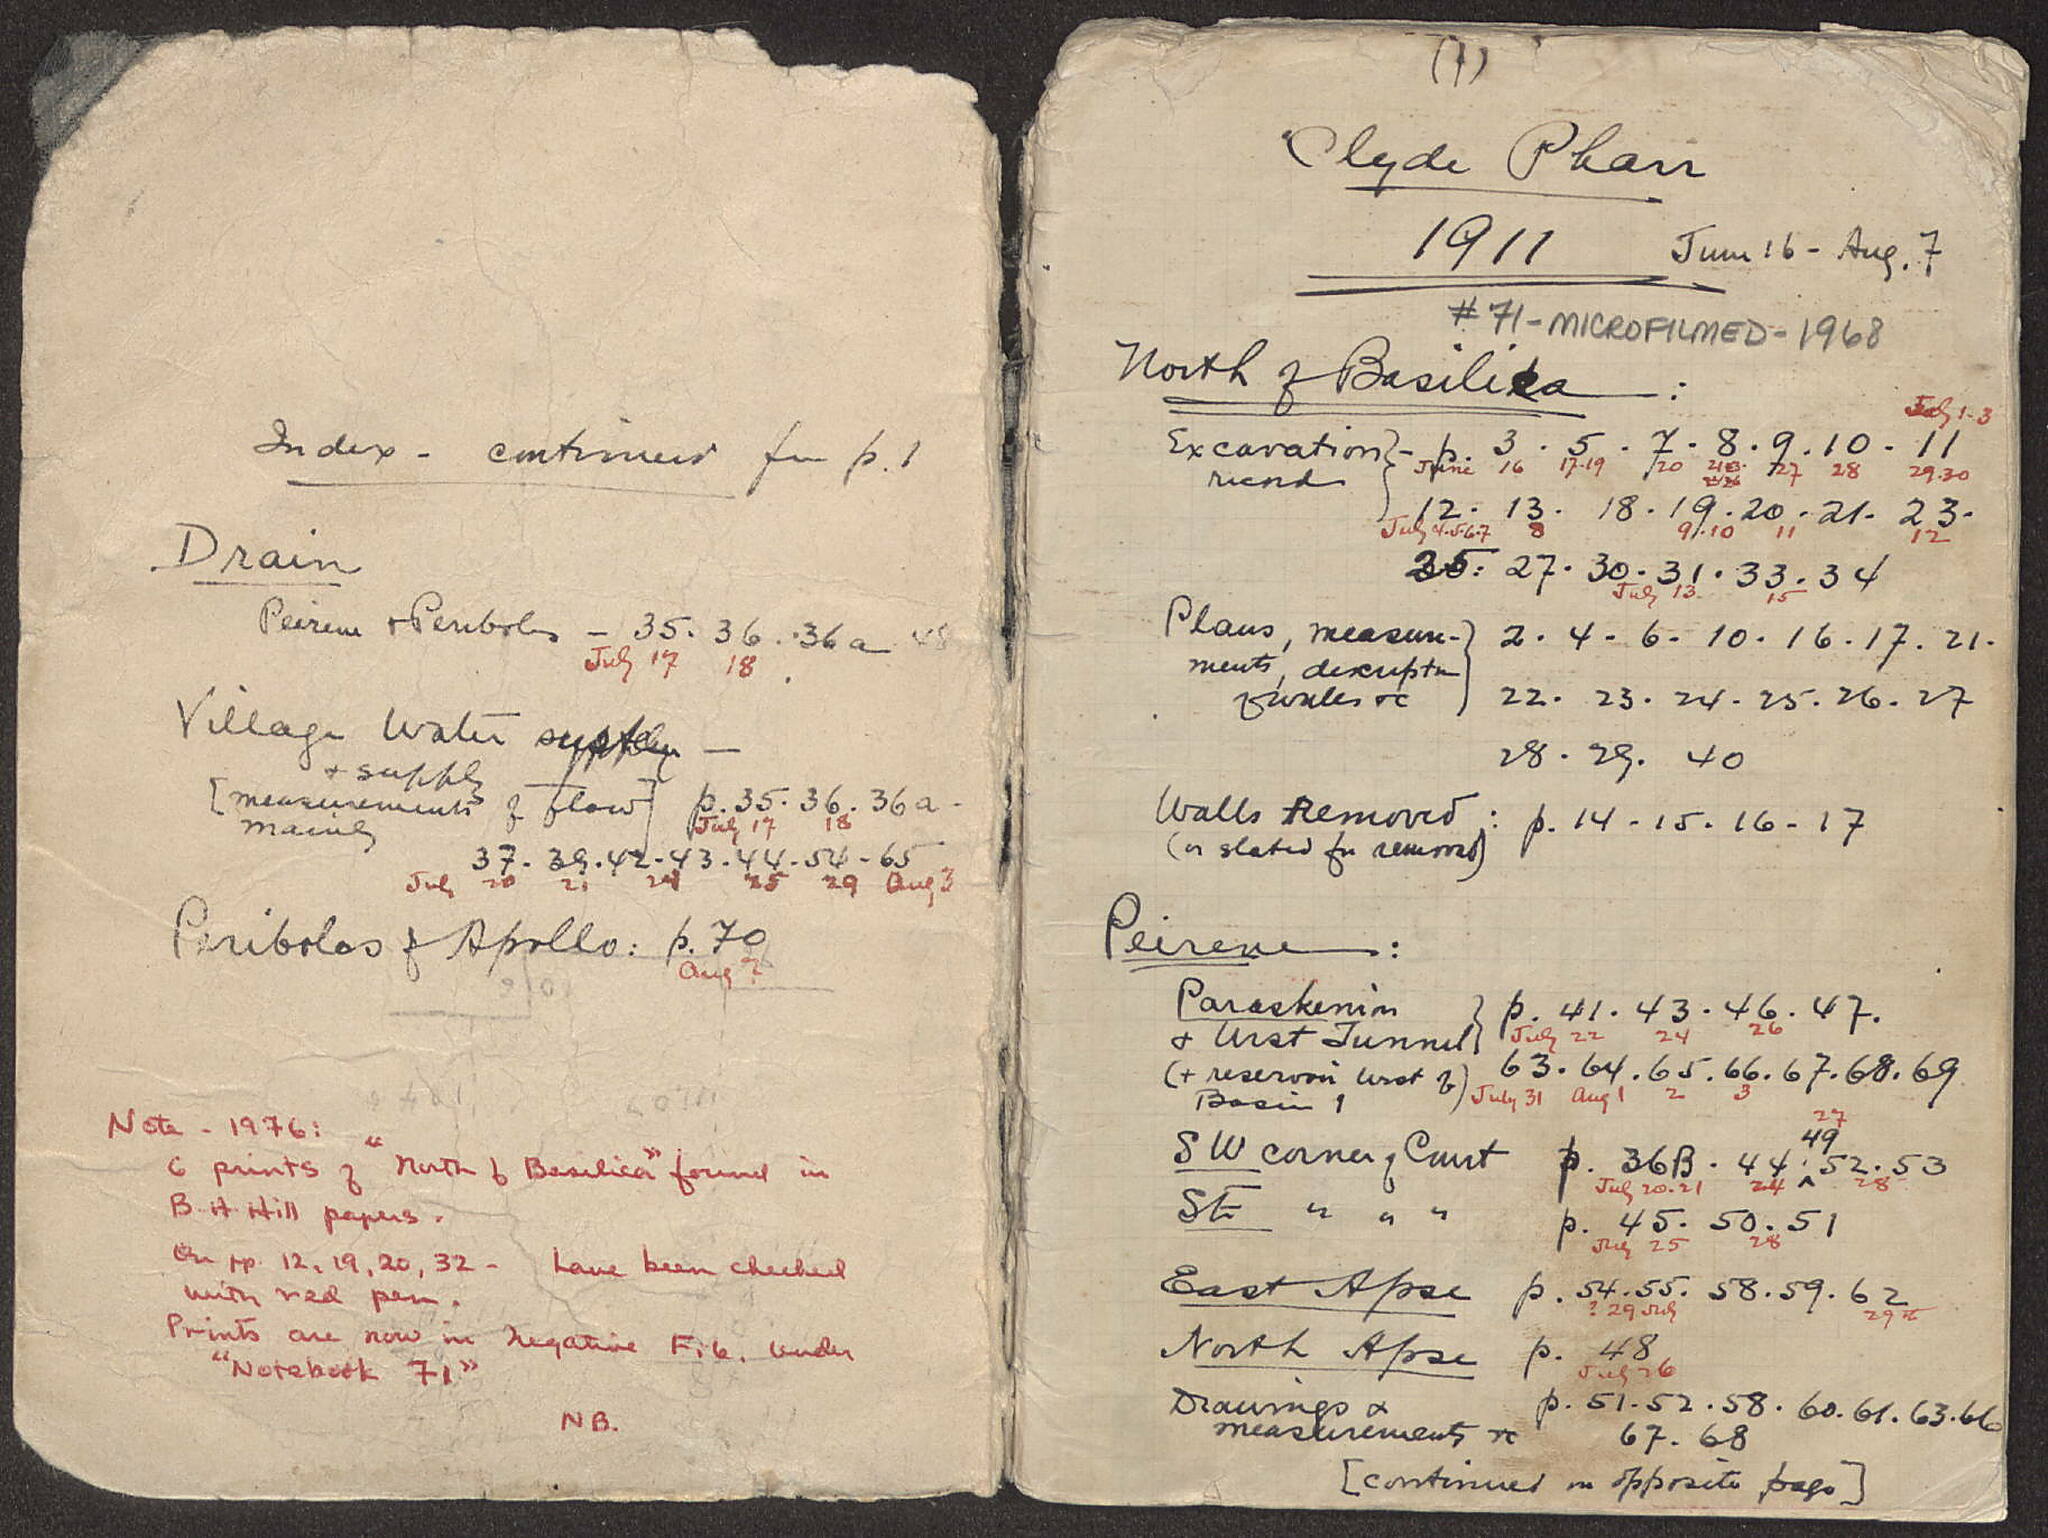 Index - continued fm p. 1
Drain
Peirene + Peribolos - 35. 36. 36a 45
July 17 18
Village Water supply -
+ supply
[measurements of flow] p. 35. 36. 36a -
mainly July 17 18
37. 39. 42. 43. 44. 54 - 65
July 20 21 24 25 29 Aug 3
Peribolos of Apollo: p. 70
Aug 7
Note - 1976:
6 prints of "North of Basilica" found in
B H Hill papers.
On pp. 12, 19, 20, 32 - have been checked
with red pen.
Prints are now in Negative File. under
"Notebook 71"
NB.
(1)
Clyde Pharr
1911 June 16 - Aug. 7
# 71 - MICROFILMED - 1968
North of Basilica :
July 1-3
Excavation } - p. 3 . 5 . 7 . 8 . 9 . 10 - 11
record June 16 17-19 20 27 28 29.30
12. 13. 18. 19. 20. 21. 23.
July 4.5.6.7 8 9.10 11 12
25: 27. 30. 31. 33. 34
July 13 15
Plans, measure- } 2. 4 - 6 - 10. 16. 17. 21.
ments, descriptn
of walls &c 22. 23. 24. 25. 26. 27
28. 29. 40
Walls Removed : p. 14 - 15. 16 - 17
(or slated for removal)
Peirene :
Paraskenion } p. 41. 43. 46. 47.
+ West Tunnel July 22 24 26
(+ reservoir West of) 63. 64. 65. 66. 67. 68. 69
Basin 1 July 31 Aug 1 2 3
27
49
SW corner of Court p. 36B. 44. 52. 53
July 20.21 24 28
SE " " " p. 45. 50. 51
July 25 28
East Apse p. 54. 55. 58. 59. 62
? 29 July 29
North Apse p. 48
July 26
Drawings & p. 51. 52. 58. 60. 61. 63. 66
measurements &c 67. 68
[continued on opposite page]